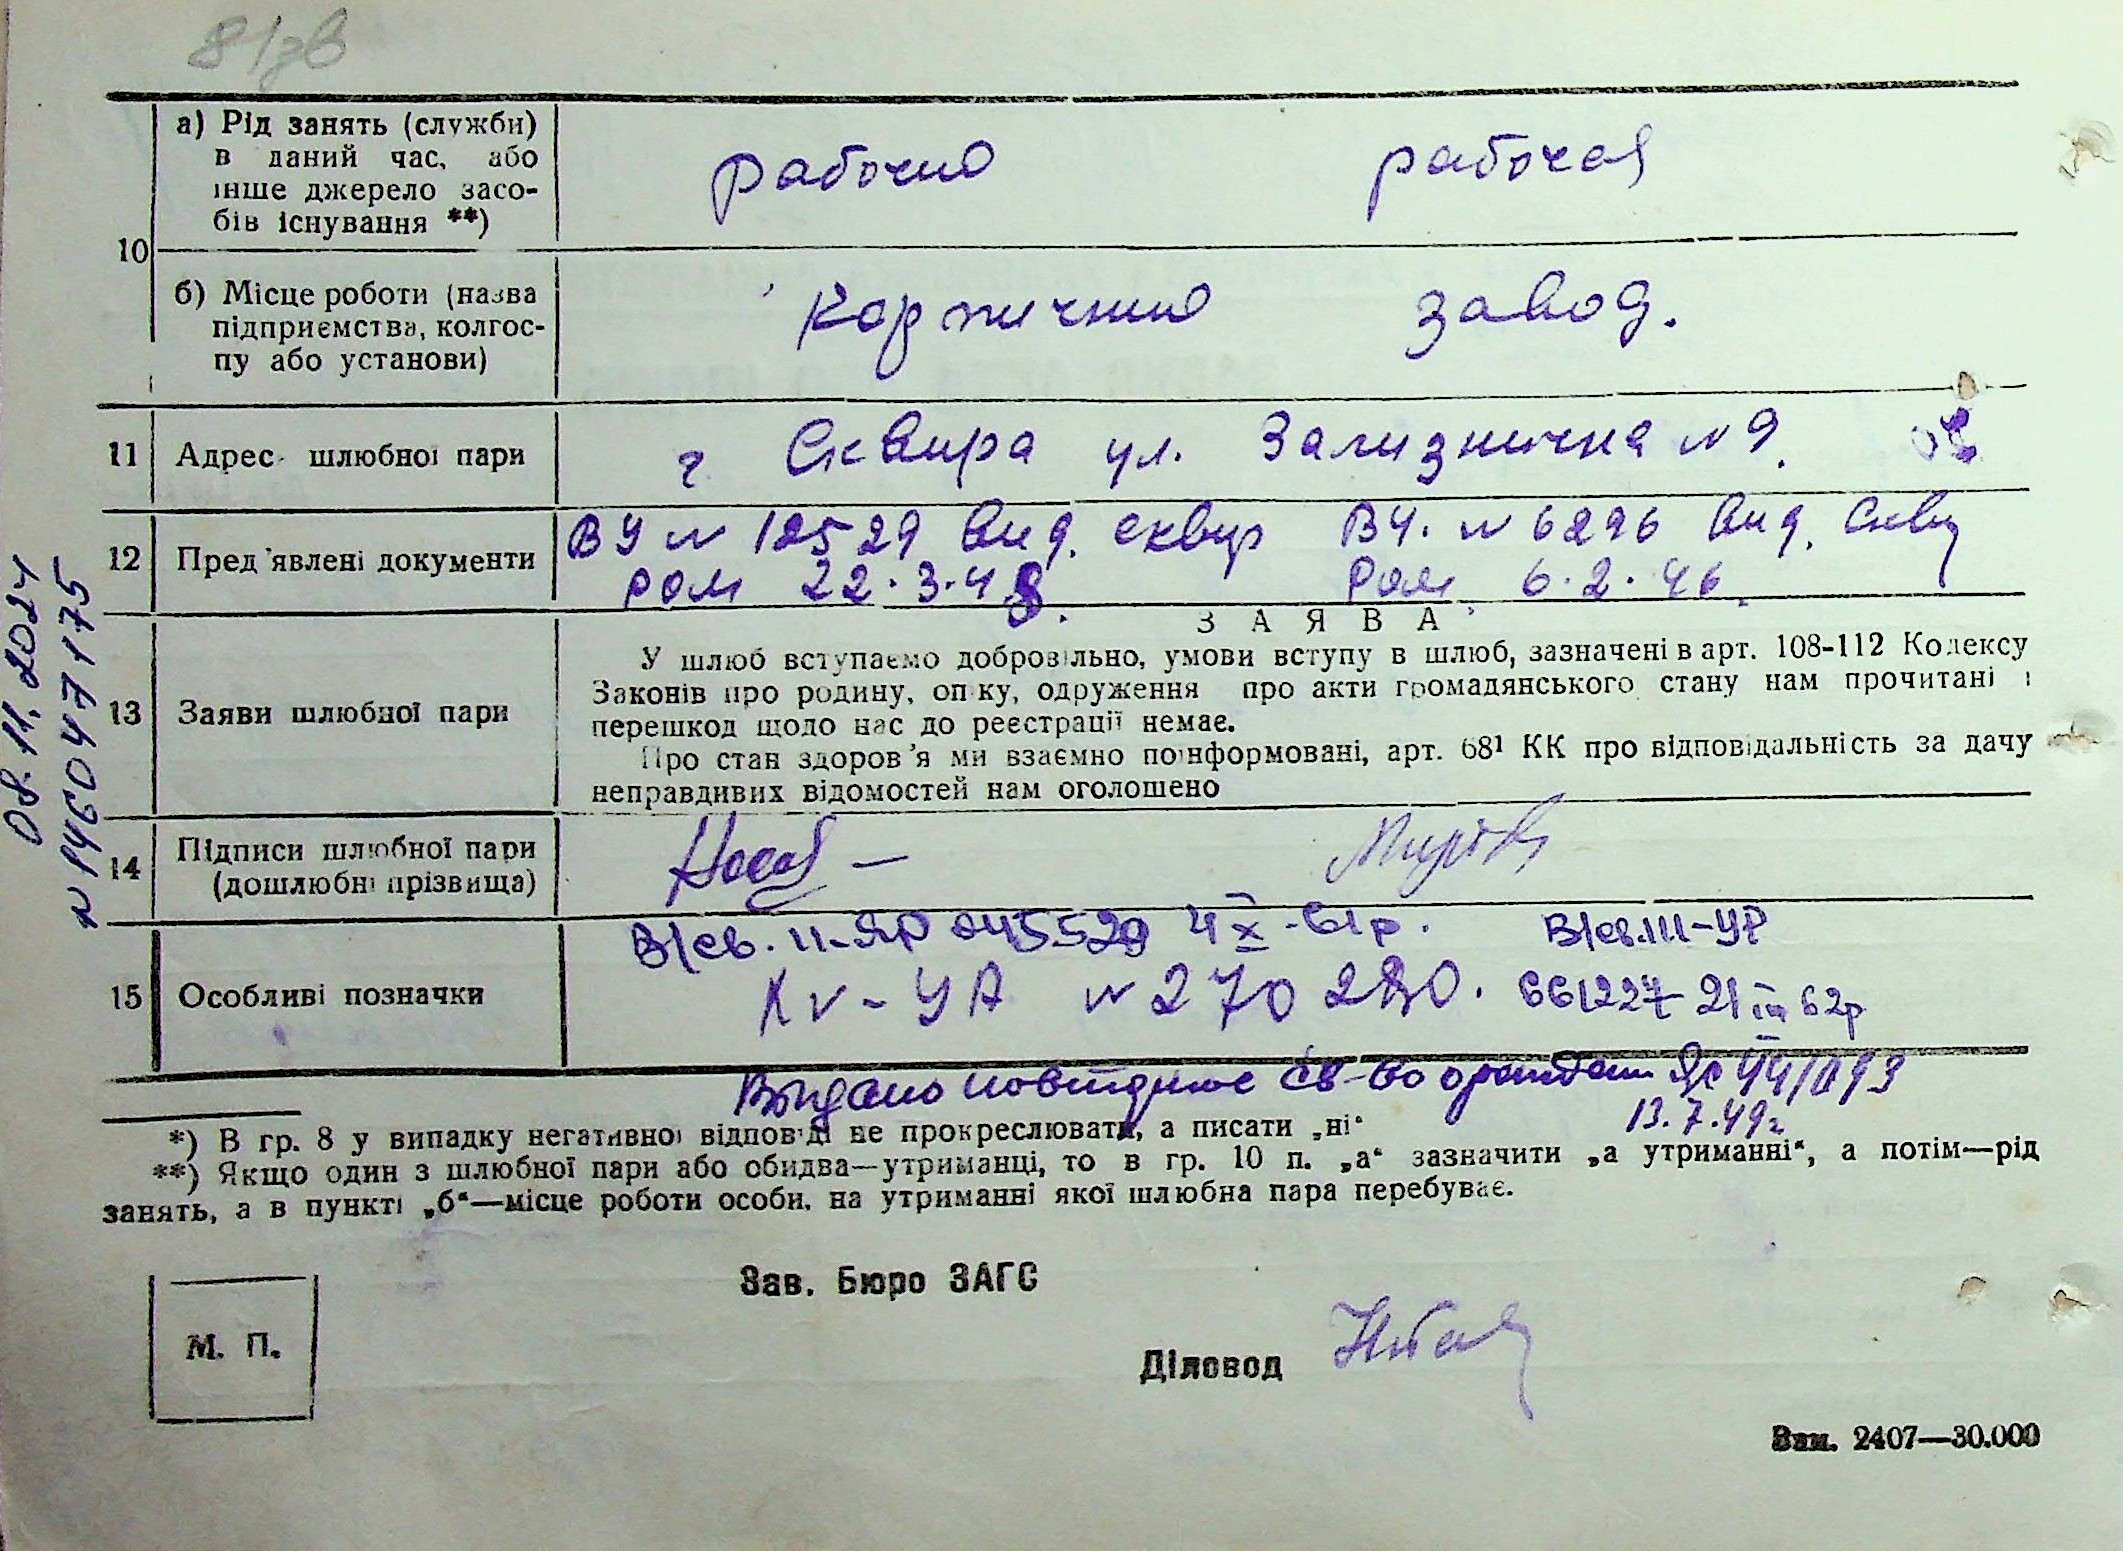 10
а) Рід занять (служби)
в даний час, або
інше джерело засо-
бів існування **)
рабочий рабочая
б) Місце роботи (назва
підприємства, колгос-
пу або установи)
завод.
11 Адрес шлюбної пари
г Сквира ул. Зализнична № 9.
12 Пред'явлені документи
ВУ № 12529 Вид. Сквир ВУ. № 6296 Вид. Скви
РОМ 22.3.48. РОМ 6.2.46.
13 Заяви шлюбної пари
ЗАЯВА
У шлюб вступаємо добровільно, умови вступу в шлюб, зазначені в арт. 108-112 Кодексу
Законів про родину, опіку, одруження про акти громадянського стану нам прочитані і
перешкод щодо нас до реєстрації немає.
Про стан здоров'я ми взаємно поінформовані, арт. 68¹ КК про відповідальність за дачу
неправдивих відомостей нам оголошено
14 Підписи шлюбної пари
(дошлюбні прізвища)
15 Особливі позначки
В/св. II-ЯР 045529 4 X-61р. В/св. III-УР
XV-УА № 270280. 661227 21 III 62р
Выдано повторное св-во о 
13.7.49г
*) В гр. 8 у випадку негативної відповіді не прокреслювати, а писати „ні“
**) Якщо один з шлюбної пари або обидва—утриманці, то в гр. 10 п. „а“ зазначити „а утриманні“, а потім—рід
занять, а в пункті „б“—місце роботи особи, на утриманні якої шлюбна пара перебуває.
М. П.
Зав. Бюро ЗАГС
Діловод
Зам. 2407—30.000
08.11.2024
№ 146047175